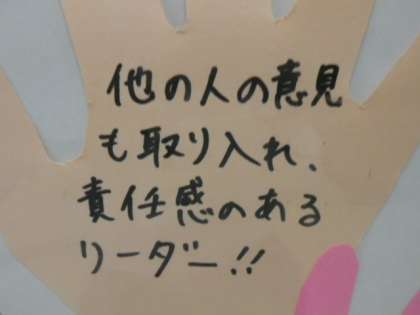 他の人の意見
も取り入れ、
責任感のある
リーダー!!